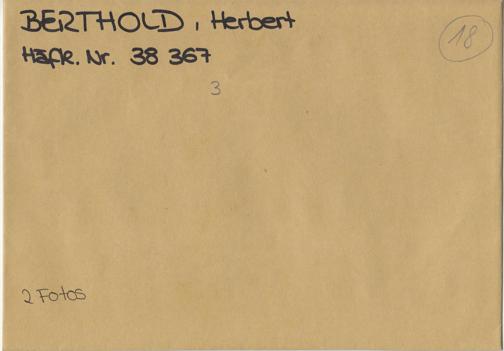 BERTHOLD, Herbert
18
Häfk. Nr. 38 367
3
2 Fotos